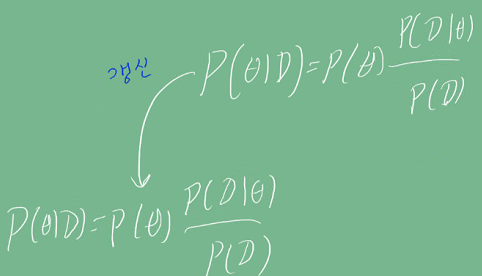 갱신
P(θ|D)=P(θ) P(D|θ)/P(D)
P(θ|D)=P(θ) P(D|θ)/P(D)